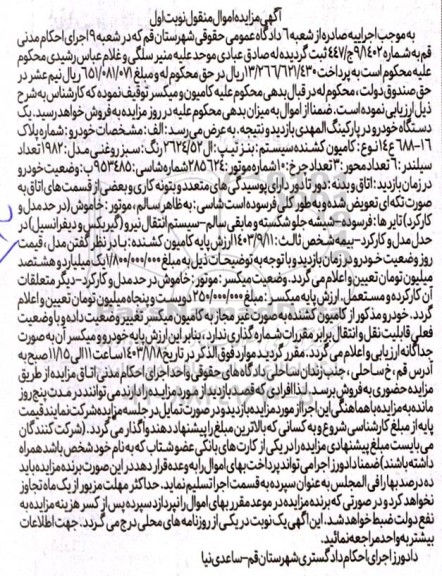 آگهی مزایده اموال منقول نوبت اول
به موجب اجراییه صادره از شعبه ۶ دادگاه عمومی حقوقی شهرستان قم که در شعبه ۹ اجرای احکام مدنی
قم به شماره ۹/۱۴۰۲ج/۴۴۷ ثبت گردیده له صادق عبادی موحد علیه منیر سلگی و غلام عباس رشیدی محکوم
علیه محکوم است به پرداخت ۱۳/۲۶۶/۶۲۱/۴۳۰ ریال در حق محکوم له و مبلغ ۶۵۱/۰۸۱/۰۷۱ ریال نیم عشر در
حق صندوق دولت، محکوم له در قبال بدهی محکوم علیه کامیون و میکسر توقیف نموده که کارشناس به شرح
ذیل ارزیابی نموده است. ضمنا از اموال به میزان بدهی محکوم علیه در روز مزایده به فروش خواهد رسید. یک
دستگاه خودرو در پارکینگ المهدی بازدید و نتیجه، به عرض می رسد: الف: مشخصات خودرو: شماره پلاک
۱۶-۶۸۸ ع ۱۴ نوع: کامیون کشنده سیستم: بنز تیپ: ال ۲۶۲۴/۵۲ رنگ: سبز روغنی مدل: ۱۹۸۲ تعداد
سیلندر: ۶ تعداد محور: ۳ تعداد چرخ: ۱۰ شماره موتور: ۲۸۵۶۲۴ شماره شاسی: ۹۵۳۴۸۵ ب: وضعیت خودرو
در زمان بازدید: اتاق و بدنه: دور تا دور دارای پوسیدگی های متعدد و بتونه کاری و بعضی از قسمت های اتاق به
صورت تکه ای تعویض شده و به طور کلی فرسوده است شاسی: به ظاهر سالم، موتور: خاموش (در حد مدل و
کارکرد) تایرها: فرسوده-شیشه جلو شکسته و مابقی سالم-سیستم انتقال نیرو (گیربکس و دیفرانسیل) در
حد مدل و کارکرد-بیمه شخص ثالث: ۱۴۰۳/۹/۱۱ ارزش پایه کامیون کشنده: با در نظر گفتن مدل، قیمت
روز وضعیت خودرو در زمان بازدید و با توجه به توضیحات ذیل به مبلغ ۱/۸۰۰/۰۰۰/۰۰۰ یک میلیارد و هشتصد
میلیون تومان تعیین و اعلام می گردد. وضعیت میکسر: موتور: خاموش در حد مدل و کارکرد-دیگر متعلقات
آن کارکرده و مستعمل. ارزش پایه میکسر: مبلغ ۲۵۰/۰۰۰/۰۰۰ دویست و پنجاه میلیون تومان تعیین و اعلام
گردد. خودرو مذکور از کامیون کشنده به صورت غیر مجاز به کامیون میکسر تغییر وضعیت داده و با وضعیت
فعلی قابلیت نقل و انتقال برابر مقررات شماره گذاری ندارد، بنابر این ارزش پایه خودرو و میکسر آن به صورت
جداگانه ارزیابی و اعلام می گردد. مقرر گردید موارد فوق الذکر در تاریخ ۱۴۰۳/۸/۸ ساعت ۱۱ الی ۱۱/۱۵ صبح به
آدرس قم، خ ساحلی، جنب زندان ساحلی دادگاه های حقوقی واحد اجرای احکام مدنی اتاق مزایده از طریق
مزایده حضوری به فروش برسد. لذا افرادی که قصد بازدید از مورد مزایده را دارند می توانند در مدت پنج روز
مانده به مزایده با هماهنگی این اجرا از مورد مزایده بازدید و در صورت تمایل در جلسه مزایده شرکت نمایند قیمت
پایه از مبلغ کارشناسی شروع و به کسانی که بالاترین مبلغ را پیشنهاد دهند واگذار می گردد. (شرکت کنندگان
می بایست مبلغ پیشنهادی مزایده را در یکی از کارت های بانکی عضو شتاب که به نام خود شخص باشد همراه
داشته باشند) ضمنا دادورز اجرا می تواند پرداخت بهای اموال را به وعده قرار دهد در این صورت برنده مزایده باید
ده درصد بها را فی المجلس به عنوان سپرده به قسمت اجرا تسلیم نماید. حداکثر مهلت مزبور از یک ماه تجاوز
نخواهد کرد و در صورتی که برنده مزایده در موعد مقرر بهای اموال را نپردازد سپرده پس از کسر هزینه مزایده به
نفع دولت ضبط خواهد شد. این آگهی یک نوبت در یکی از روزنامه های محلی درج می گردد. جهت اطلاعات
بیشتر به واحد مراجعه نمائید.
دادورز اجرای احکام دادگستری شهرستان قم-ساعدی نیا